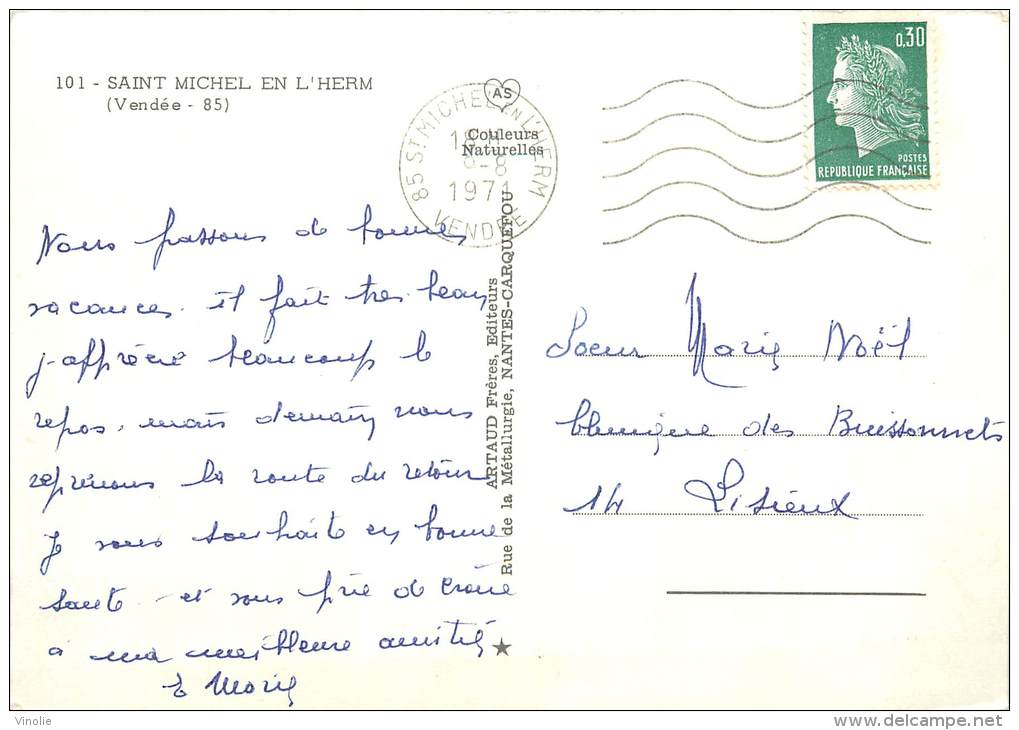 101 - SAINT MICHEL EN L'HERM
(Vendée - 85)
AS
Couleurs
Naturelles
85 ST MICHEL EN L'HERM
18 H
9-8
1971
VENDÉE
0,30
POSTES
REPUBLIQUE FRANÇAISE
Nous passons de bonnes
vacances. il fait très beau
j'apprécie beaucoup le
repos, mais demain nous
reprenons la route du retour
Je vous souhaite en bonne
santé - et vous prie de croire
à ma meilleure amitié
Marie
ARTAUD Frères, Editeurs
Rue de la Métallurgie, NANTES-CARQUEFOU
Soeur Marie Noël
Clinique des Buissonnets
14 Lisieux
Vinolie
delcampe.net